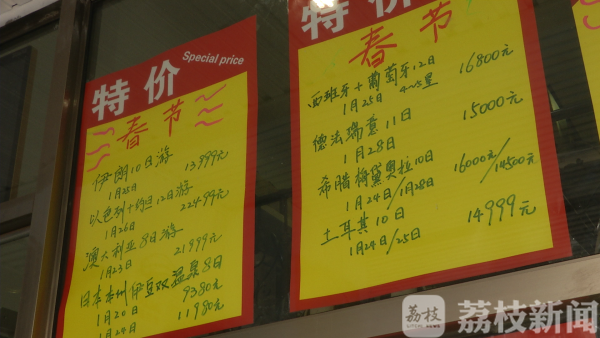 特价
Special price
春节
伊朗10日游
1月25日
13999元
以色列+约旦12日游
1月26日
22499元
澳大利亚8日游
1月23日
21999元
日本本州伊豆双温泉8日
1月20日
9380元
1月24日
11980元
特价
春节
西班牙+葡萄牙12日
1月25日
16800元
德法瑞意11日
1月28日
15000元
希腊梅黛奥拉10日
1月24日/1月28日
16000元/14500元
土耳其10日
1月24日/25日
14999元
荔枝
LITCHI NEWS
荔枝新闻